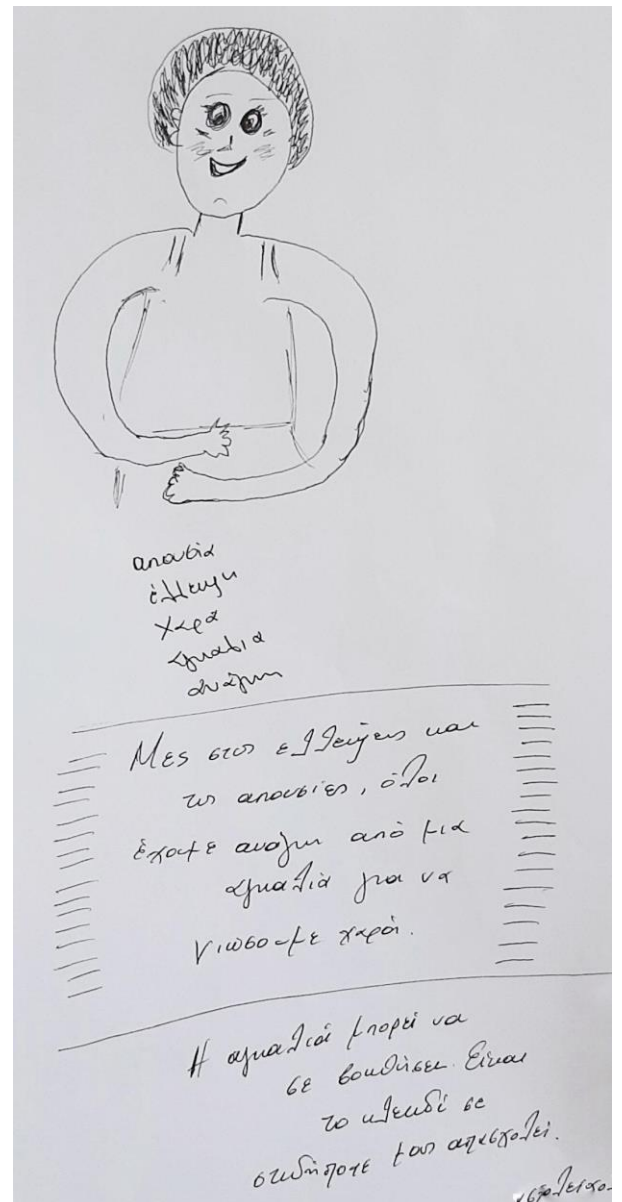 απουσία
έλλειψη
χαρά
αγκαλιά
ανάγκη
Μες στις ελλείψεις και
τις απουσίες, όλοι
έχουμε ανάγκη από μια
αγκαλιά για να
νιώσουμε χαρά.
Η αγκαλιά μπορεί να
σε βοηθήσει. Είναι
το κλειδί σε
οτιδήποτε μας απασχολεί.